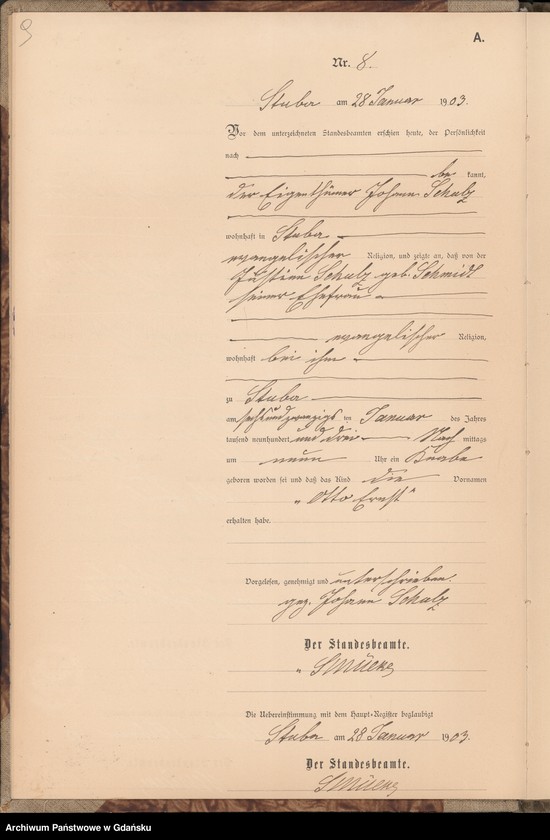 9
A.
Nr. 8.
Stuba am 28 Januar 1903.
Vor dem unterzeichneten Standesbeamten erschien heute, der Persönlichkeit
nach
be kannt,
der Eigenthümer Johann Schulz
wohnhaft in Stuba
evangelischer Religion, und zeigte an, daß von der
Justine Schulz geb. Schmidt
seiner Ehefrau
evangelischer Religion,
wohnhaft bei ihm
zu Stuba
am sechsundzwanzigs ten Januar des Jahres
tausend neunhundert und drei Nach mittags
um neun Uhr ein Knabe
geboren worden sei und daß das Kind die Vornamen
"Otto Ernst"
erhalten habe.
Vorgelesen, genehmigt und unterschrieben.
gez. Johann Schulz
Der Standesbeamte.
Die Uebereinstimmung mit dem Haupt-Register beglaubigt
Stuba am 28 Januar 1903.
Der Standesbeamte.
Archiwum Państwowe w Gdańsku